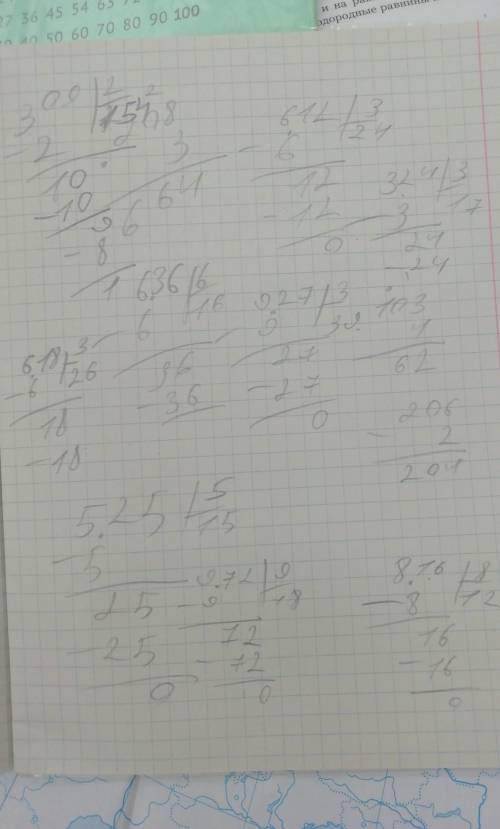 27 36 45 54 63 72
40 50 60 70 80 90 100
и на ра
одородные равнины
309 | 2
- 2
10
- 10
96
- 8
1
3
64
612 | 3
- 6 24
12
- 12
0
324 | 3
- 3 17
24
- 24
636 | 6
- 6 16
36
- 36
9.27 | 3
- 9 39.
27
- 27
0
103
62
618 | 3
- 6 26
18
- 18
206
- 2
204
5.25 | 5
- 5 15
25
- 25
0
9.72 | 9
- 9 18
72
- 72
0
8.16 | 8
- 8 12
16
- 16
0